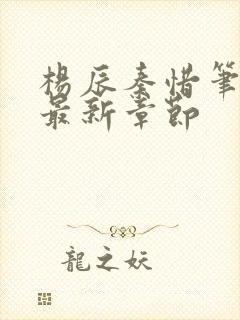 楊辰秦惜筆
最新章節
龍之妖